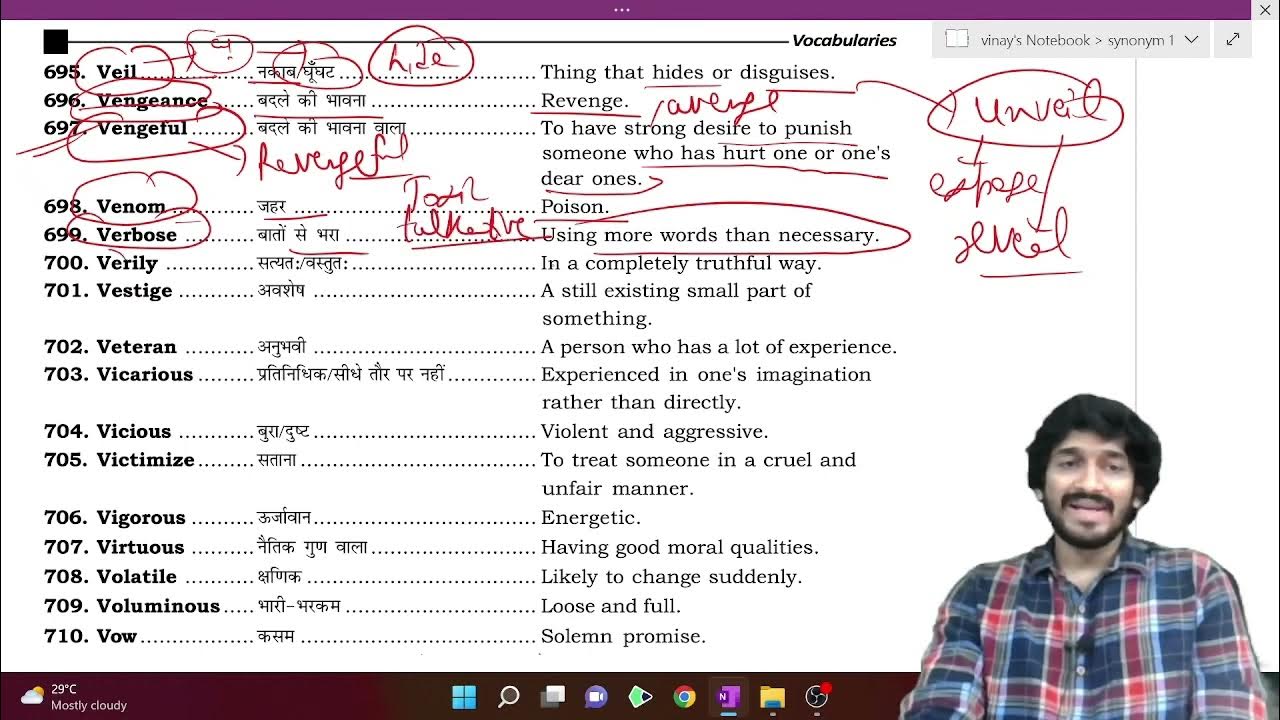 ...
Vocabularies
vinay's Notebook > synonym 1
hide
695. Veil.................. नकाब/घूँघट ............................... Thing that hides or disguises.
unveil
696. Vengeance ....... बदले की भावना .......................... Revenge.
avenge
697. Vengeful .......... बदले की भावना वाला .................... To have strong desire to punish
someone who has hurt one or one's
dear ones.
Revengeful
698. Venom ............. जहर ........................................ Poison.
Toxic
talkative
699. Verbose ........... बातों से भरा .............................. Using more words than necessary.
700. Verily .............. सत्यतः/वस्तुतः ........................... In a completely truthful way.
701. Vestige ............ अवशेष .................................... A still existing small part of
something.
702. Veteran ........... अनुभवी .................................... A person who has a lot of experience.
703. Vicarious ......... प्रतिनिधिक/सीधे तौर पर नहीं.............. Experienced in one's imagination
rather than directly.
704. Vicious ............ बुरा/दुष्ट.................................... Violent and aggressive.
705. Victimize ......... सताना ..................................... To treat someone in a cruel and
unfair manner.
706. Vigorous .......... ऊर्जावान................................... Energetic.
707. Virtuous .......... नैतिक गुण वाला.......................... Having good moral qualities.
708. Volatile ........... क्षणिक ..................................... Likely to change suddenly.
709. Voluminous ..... भारी-भरकम .............................. Loose and full.
710. Vow................. कसम ..................................... Solemn promise.
29°C
Mostly cloudy